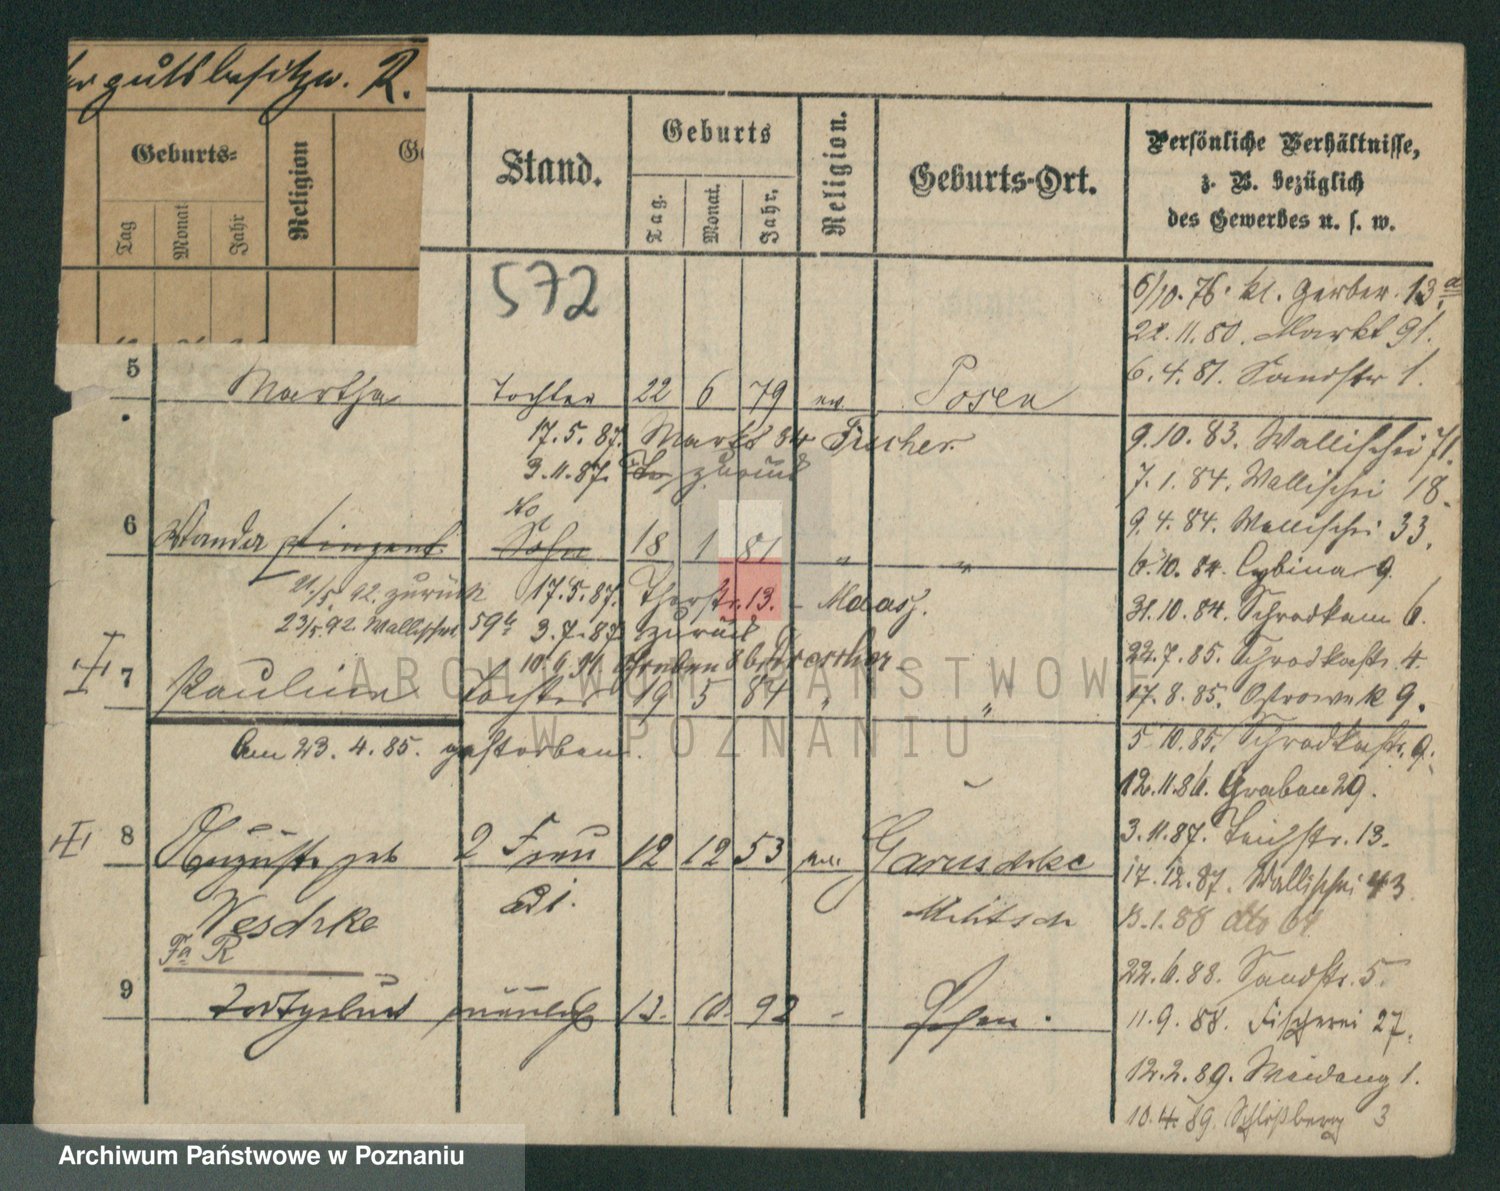 gutsbesitzer. R.
Geburts-
Religion
Tag
Monat
Jahr
Stand.
Geburts
Tag.
Monat.
Jahr.
Religion.
Geburts-Ort.
Persönliche Verhältnisse,
z. B. bezüglich
des Gewerbes u. s. w.
572
6/10. 76. kl. Gerber. 13a
22. 11. 80. Markt 91.
6. 4. 81. Sandstr 1.
5 Martha Tochter 22 6 79 ev. Posen
17. 5. 87. Markt 84 Fischer.
3. 11. 87. zurück
9. 10. 83. Wallischei 71.
7. 1. 84. Wallischei 18.
6 Wanda Sohn 18 1 81 " "
9. 4. 84. Wallischei 33.
6. 10. 84. Cybina 9.
21/5. 92. zurück 17. 5. 87. Thorstr. 13. -
23/5. 92. Wallischei 59 3. 7. 87 zurück
31. 10. 84. Schrodkam 6.
22. 7. 85. Schrodkastr. 4.
7 Pauline Tochter 19 5 84 " "
17. 8. 85. Ostrowek 9.
Am 23. 4. 85. gestorben.
5. 10. 85. Schrodkastr. 9.
12. 11. 86. Graben 29.
8 Auguste geb 2 Frau 12 12 53 ev.
3. 11. 87. Teichstr. 13.
17. 12. 87. Wallischei 43
Neschke Militsch
13. 1. 88 dto 64
Fa R
22. 6. 88. Sandstr. 5.
9 Todtgeburt männlich 13. 10. 92 - Posen.
11. 9. 88. Fischerei 27.
12. 2. 89. Weidang 1.
10. 4. 89. Schloßberg 3
ARCHIWUM PAŃSTWOWE
W POZNANIU
Archiwum Państwowe w Poznaniu